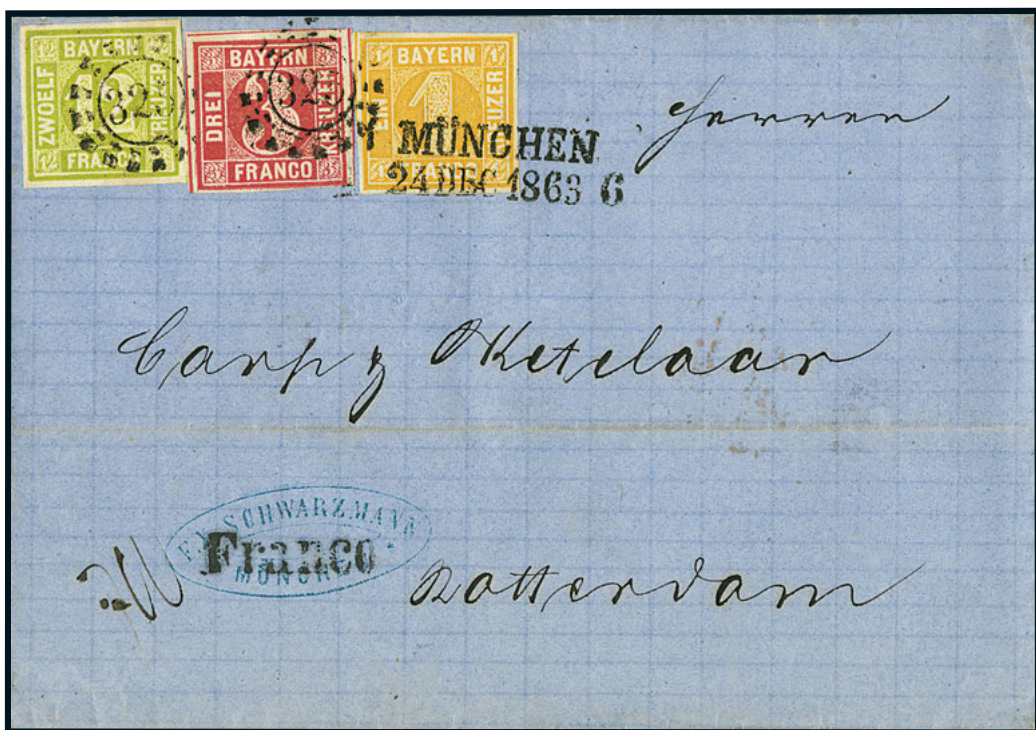 12 BAYERN
ZWOELF 12 KREUZER
12 FRANCO 12
325
BAYERN
DREI 3 KREUZER
FRANCO
325
1 BAYERN 1
EIN 1 KREUZER
1 FRANCO 1
MÜNCHEN
24 DEC 1863 6
Herren
Carp & Ketelaar
F. X. SCHWARZMANN
MÜNCH
Franco
Rotterdam